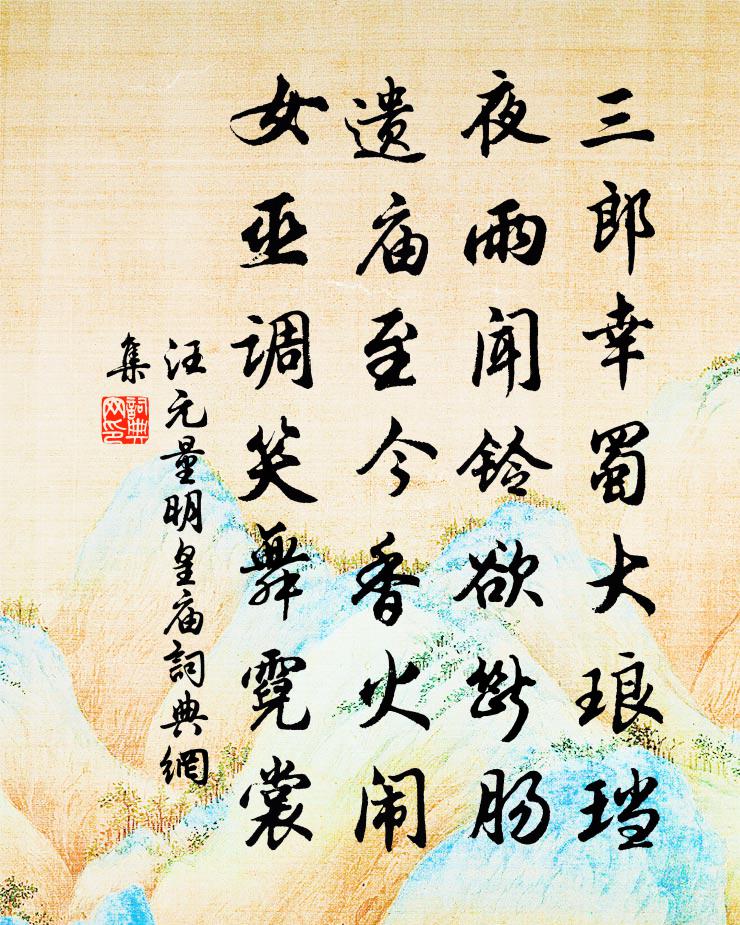 三郎幸蜀大琅珰
夜雨闻铃欲断肠
遗庙至今香火闹
女巫调笑舞霓裳
汪元量明皇庙詞典網
集
詞典
网印